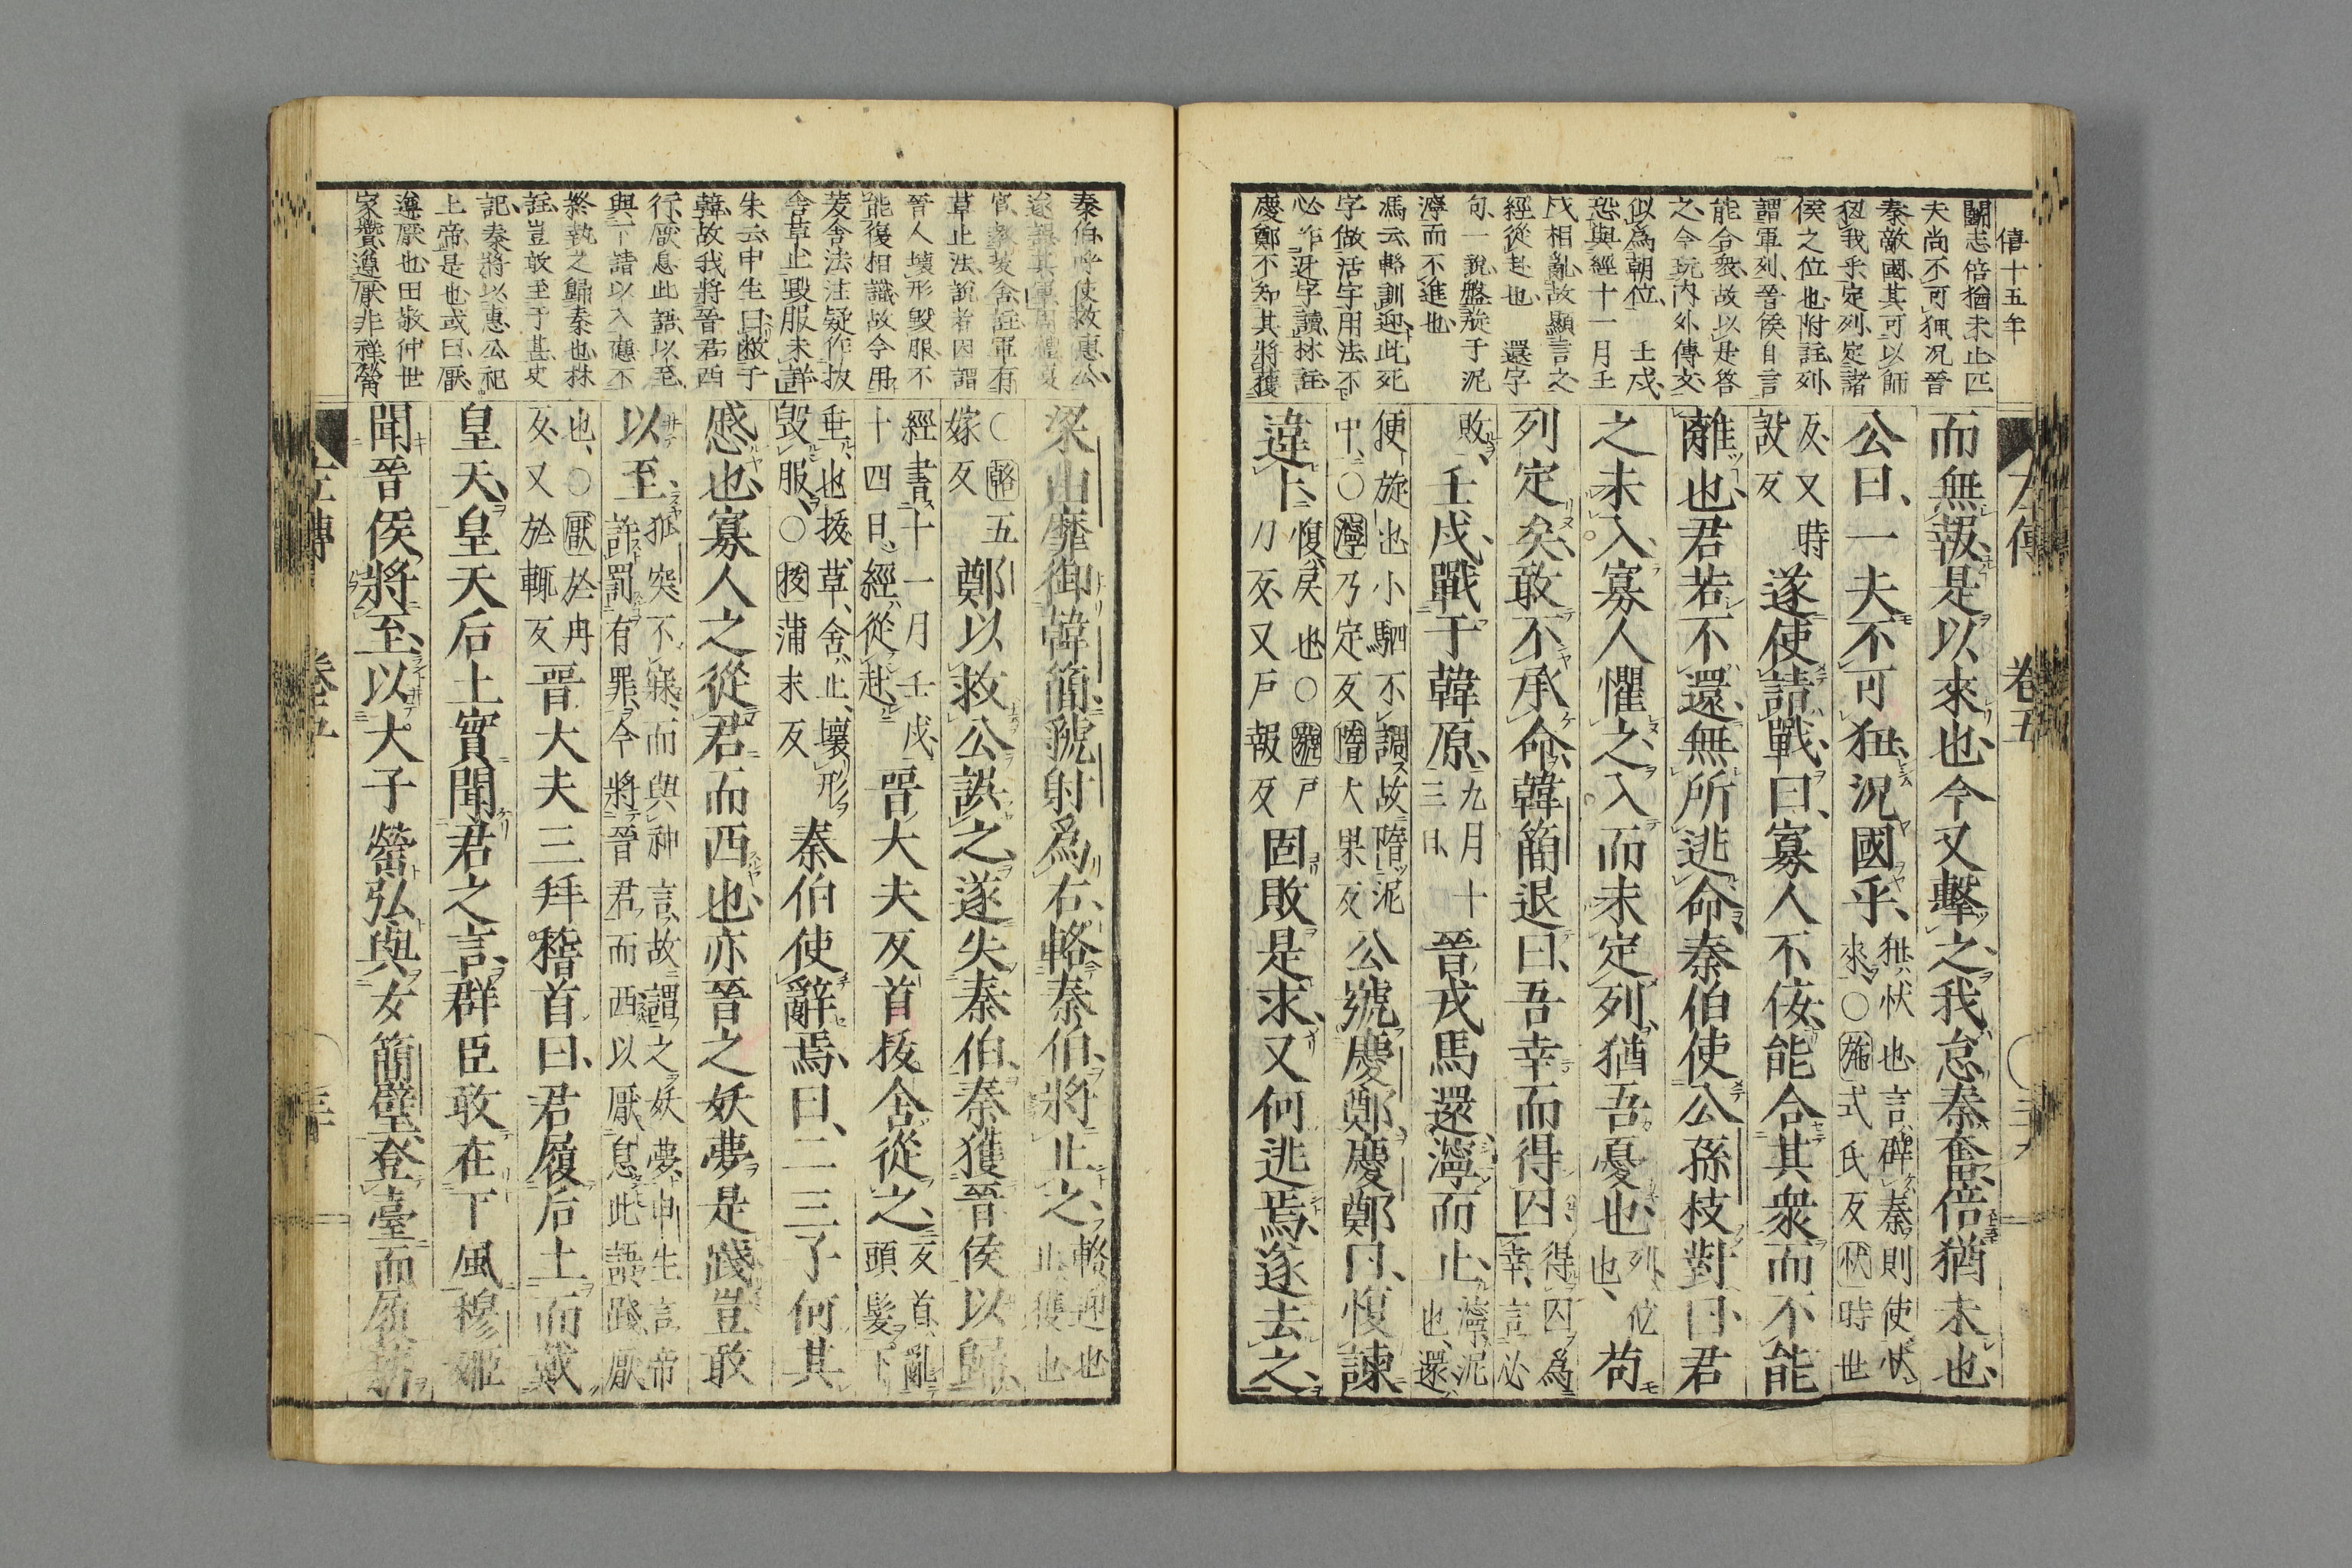 僖十五年
左傳
卷五
鬭志倍猶未止匹
夫尚不可狃况晉
秦敵國其可以師
狃我乎定列定諸
侯之位也附註列
謂軍列晉侯自言
能合衆故以是答
之今玩内外傳文
似為朝位 壬戌
恐與經十一月壬
戌相亂故顯言之
經從赴也 還字
句一說盤旋于泥
濘而不進也
馮云輅訓迎此死
字做活字用法不
必作迓字讀林註
慶鄭不知其將獲
而無報是以來也今又擊之我怠秦奮倍猶未也
公曰一夫不可狃況國乎
狃忕也言辟秦則使忕
來○施式氏反忕時世
反又時
設反
遂使請戰曰寡人不佞能合其衆而不能
離也君若不還無所逃命秦伯使公孫枝對曰君
之未入寡人懼之入而未定列猶吾憂也
列位
也
苟
列定矣敢不承命韓簡退曰吾幸而得囚
得囚為
幸言必
敗
壬戌戰于韓原
九月十
三日
晉戎馬還濘而止
濘泥
也還
便旋也小駟不調故墮泥
中○濘乃定反墮大果反
公號慶鄭慶鄭曰愎諫
違卜
愎戾也○號戸
刀反又戸報反
固敗是求又何逃焉遂去之
秦伯呼使救惠公
遂誤其軍周禮夏
官教茇舍註軍有
草止法說者因謂
晉人壊形毀服不
能復相識故令用
茇舍法注疑作拔
舍草止毀服未詳
朱云申生曰敝于
韓故我將晉君西
行厭息此語以至
與下請以入憑不
終執之歸秦也林
註豈敢至于甚史
記秦將以惠公祀
上帝是也或曰厭
遵厭也田敬仲世
梁由靡御韓簡虢射為右輅秦伯將止之
輅迎也
止獲也
○輅五
嫁反
鄭以救公誤之遂失秦伯秦獲晉侯以歸
經書十一月壬戌
十四日經從赴
晉大夫反首拔舍從之
反首亂
頭髮下
垂也拔草舍止壞形
毀服○拔蒲末反
秦伯使辭焉曰二三子何其
慼也寡人之從君而西也亦晉之妖夢是踐豈敢
以至
狐突不寐而與神言故謂之妖夢申生言帝
許罰有罪今將晉君而西以厭息此語踐厭
也○厭於冉
反又於輒反
晉大夫三拜稽首曰君履后土而戴
皇天皇天后土實聞君之言群臣敢在下風穆姬
聞晉侯將至以大子罃弘與女簡璧登臺而履薪
左傳
卷五